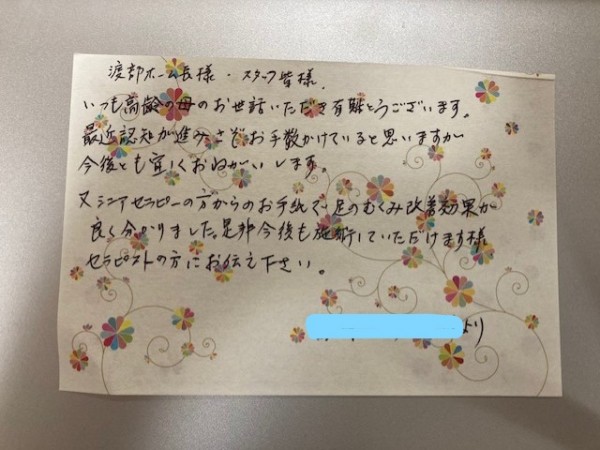 渡部ホーム長様・スタッフ皆様。
いつも高齢の母のお世話いただき有難とうございます。
最近認知が進みさぞお手数かけていると思いますが
今後とも宜しくおねがいします。
又シニアセラピーの方からのお手紙で足のむくみ改善効果が
良く分かりました。是非今後も施術していただけます様
セラピストの方にお伝え下さい。
より